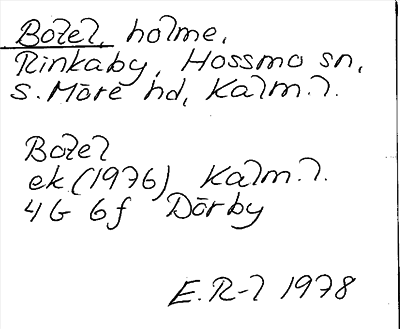 Bołel, holme,
Rinkaby, Hossmo sn,
S. Möre hd, Kalm. l.
Bołel
ek (1976) Kalm. l.
4G 6f Dörby
E. R-l 1978